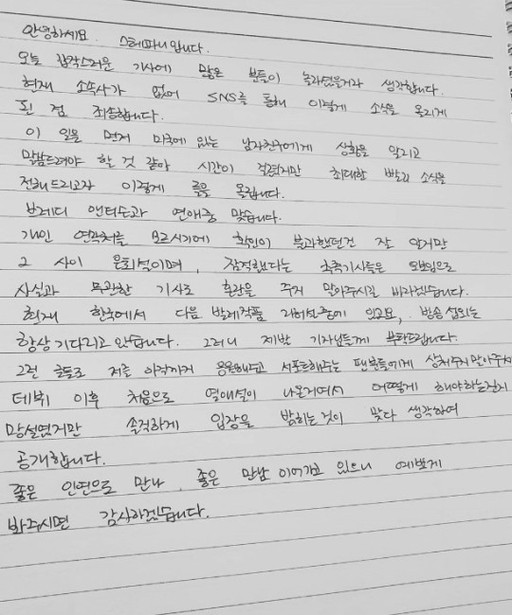 안녕하세요. 스테파니입니다.
오늘 갑작스러운 기사에 많은 분들이 놀라셨을거라 생각합니다.
현재 소속사가 없어 SNS를 통해 이렇게 소식을 올리게
된 점 죄송합니다.
이 일을 먼저 미국에 있는 남자친구에게 상황을 알리고
말씀드려야 할 것 같아 시간이 걸렸지만 최대한 빨리 소식을
전해드리고자 이렇게 글을 올립니다.
브래디 앤더슨과 연애중 맞습니다.
개인 연락처를 모르시기에 확인이 불과했던건 잘 알지만
그 사이 은퇴설이며, 잠적했다는 추측기사들은 오보임으로
사실과 무관한 기사로 혼란을 주지 말아주시길 바라겠습니다.
현재 한국에서 다음 발레작품 리허설중에 있고요, 방송 섭외는
항상 기다리고 있습니다. 그러니 제발 기자님들께 부탁드립니다.
그런 글들로 저를 아직까지 응원해주고 서포트해주는 팬분들에게 상처주지 말아주세
데뷔 이후 처음으로 열애설이 나온거여서 어떻게 해야하는건지
망설였지만 솔직하게 입장을 밝히는것이 맞다 생각하여
공개합니다.
좋은 인연으로 만나 좋은 만남 이어가고 있으니 예쁘게
봐주시면 감사하겠습니다.